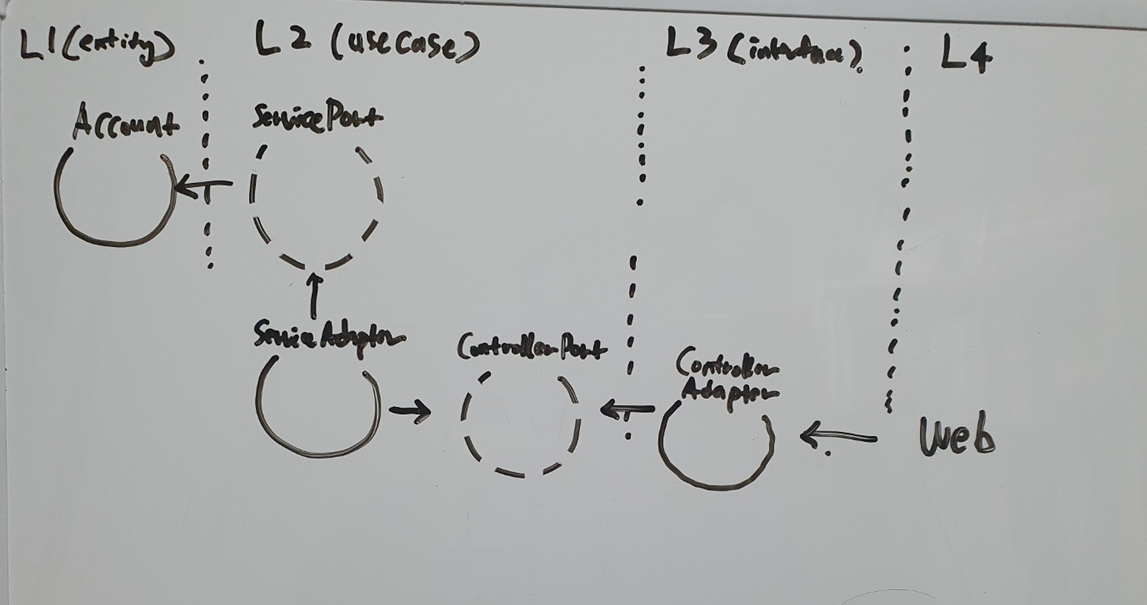 L1 (entity)
L2 (usecase)
L3 (interface)
L4
Account
ServicePort
ServiceAdapter
ControllerPort
Controller
Adapter
Web